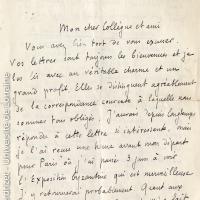 Mon cher Collègue et ami
Vous avez bien tort de vous excuser.
Vos lettres sont toujours les bienvenues et je
les lis avec un véritable charme et un
grand profit. Elles se distinguent agréablement
de la correspondance courante à laquelle nous
sommes tous obligés. J'aurais depuis longtemps
répondu à cette lettre si intéressante, mais
je l'ai reçue une heure avant mon départ
pour Paris où j'ai passé 3 jours à voir
l'Exposition byzantine qui est merveilleuse.
J'y retournerai probablement. Quant aux
Université de Lorraine